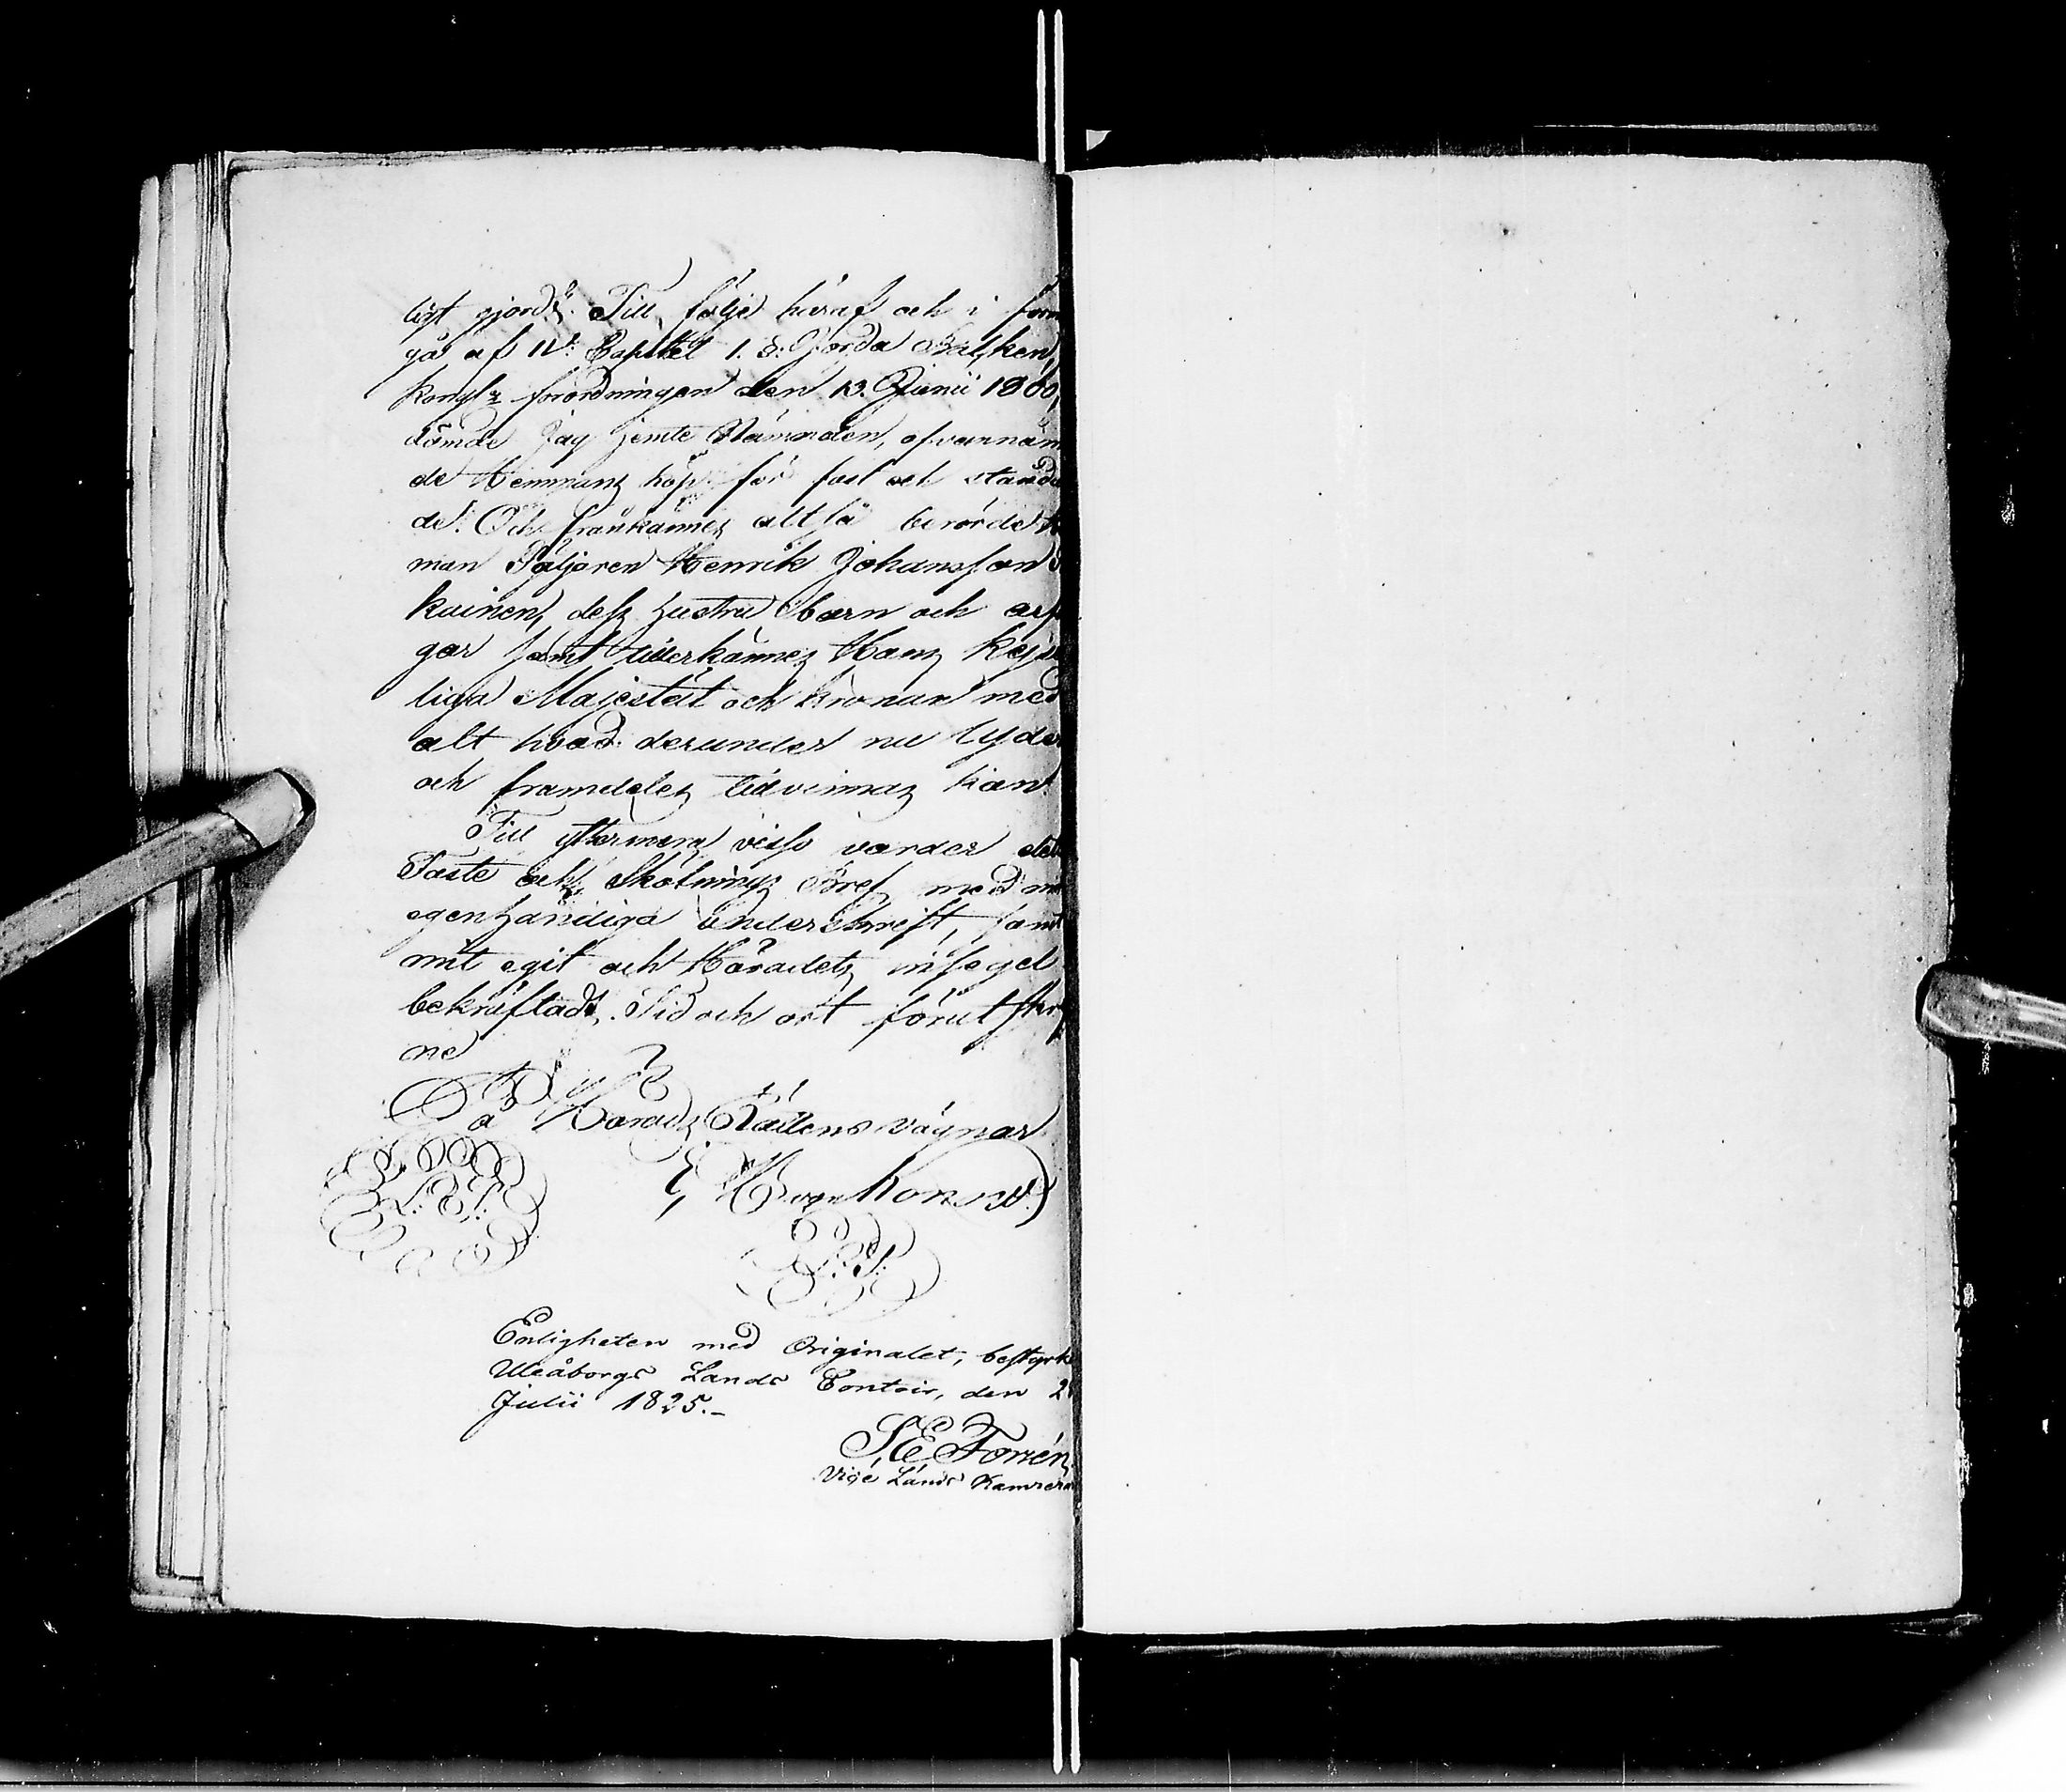 ligt gjordt. Till följe häraf och i förm
gå af 11t: Capitlet 1. §. Jorda Balken,
Kongl: förordningen den 13. Junii 1800,
dömde Jag jemte Nämnden, ofvannäm
de Hemmans köp för fast och stånda
de. Och frånkännes altså berörde
man Säljaren Henrik Johansson
kainen, dess hustru barn och arf
gar samt tillerkännes Hans Kejser
liga Majestät och Kronan med
alt hvad derunder nu lyder
och framdeles tidvinnas kan
Till yttermera visso varder det
Faste och Skötnings Bref med m
egenhändiga underskrift, samt
mit egit och Häradets insegel
bekräftadt. Tid och ort förutskrif
ne
På Härads Rättens vägnar
von Konow
L.S.
L.S.
Enligheten med Originalet, bestyrk
Uleåborgs Lands Contoir, den 2
Julii 1825.-
S E Forsén
Vice Lands Kamrera